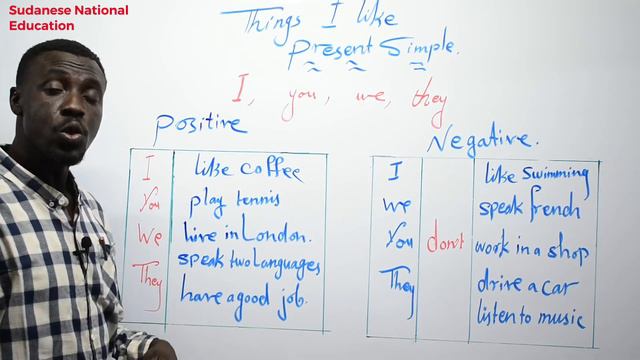 Sudanese National
Education
Things I like
Present Simple.
I, you, we, they
Positive
I
You
We
They
like coffee
play tennis
live in London.
speak two Languages
have a good job.
Negative.
I
we
You
They
don't
like swimming
speak french
work in a shop
drive a car
listen to music